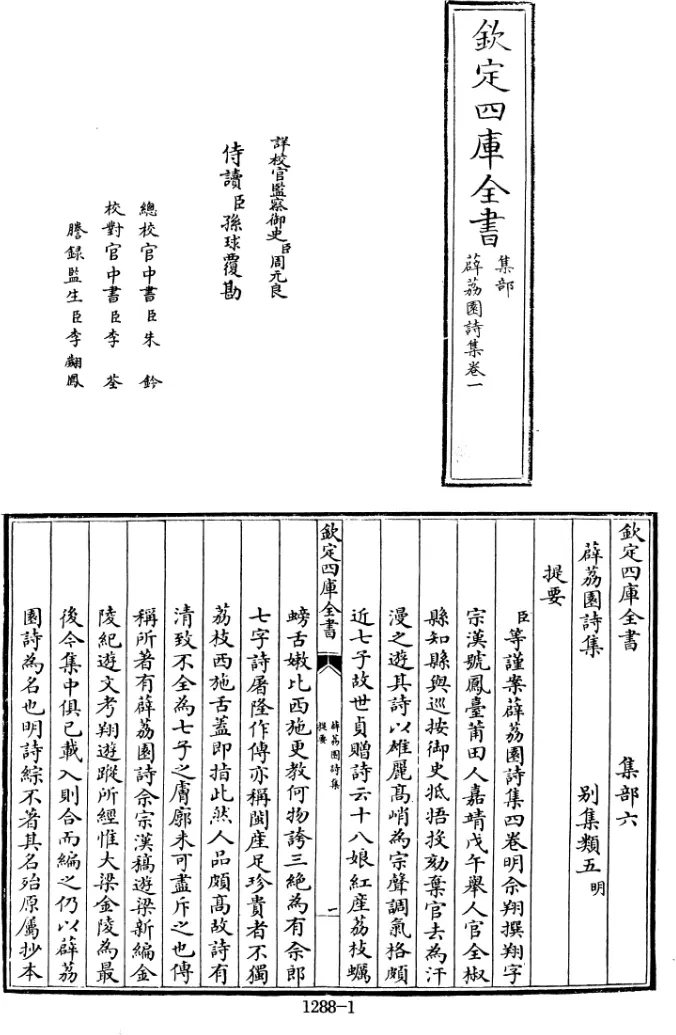 欽定四庫全書
集部
薜荔園詩集卷一
詳校官監察御史臣周元良
侍讀臣孫球覆勘
總校官中書臣朱鈐
校對官中書臣李荃
謄錄監生臣李翽鳳
欽定四庫全書 集部六
薜荔園詩集 别集類五明
提要
臣等謹案薜荔園詩集四卷明佘翔撰翔字
宗漢號鳳臺莆田人嘉靖戊午舉人官全椒
縣知縣與巡按御史抵捂投劾棄官去為汗
漫之遊其詩以雄麗高峭為宗聲調氣格頗
近七子故世貞贈詩云十八娘紅産荔枝蠣
欽定四庫全書
薜荔園詩集
提要
一
螃舌嫩比西施更教何物誇三絶為有佘郎
七字詩屠隆作傳亦稱閩産足珍貴者不獨
荔枝西施舌蓋即指此然人品頗高故詩有
清致不全為七子之膚廓未可盡斥之也傳
稱所著有薜荔園詩佘宗漢稿遊梁新編金
陵紀遊文考翔遊蹤所經惟大梁金陵為最
後今集中俱已載入則合而編之仍以薜荔
園詩為名也明詩綜不著其名殆原屬抄本
1288-1